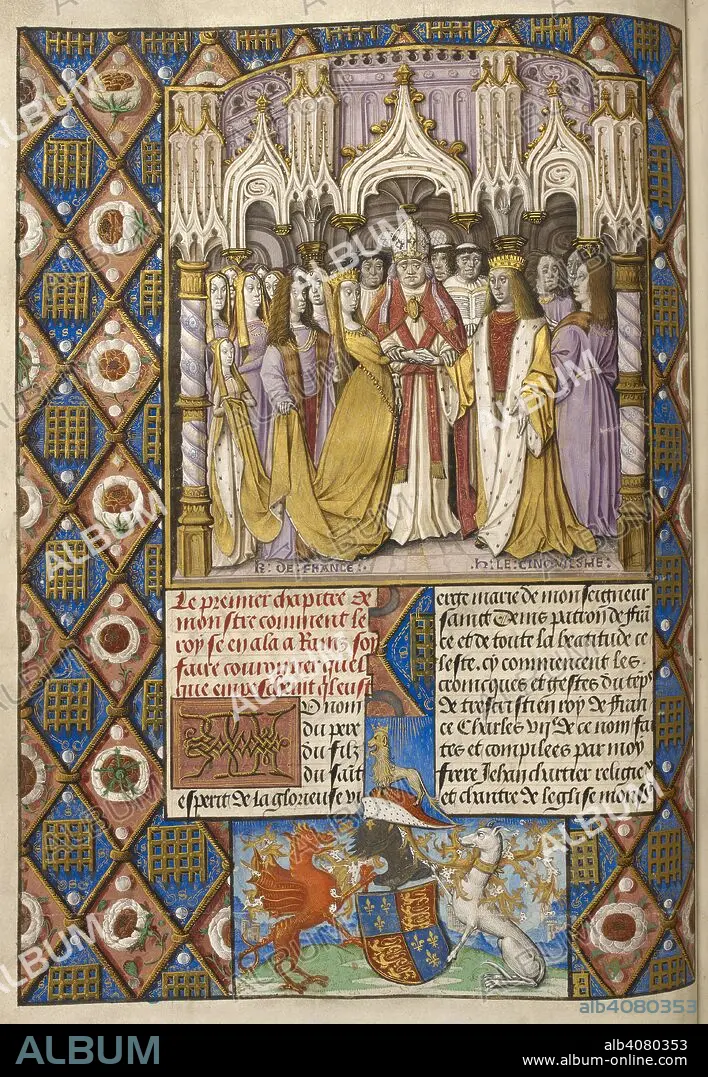 K. DE FRANCE.
.h. LE CINQVIESME.
Le premier chapitre de
monstre comment le
roy se en ala a Rains soy
faire couronner quel
que empeschent
nom
du pere
du filz
du sait
esperit de la glorieuse vi
erge marie de mon seigneur
sainct Denis patron de fran
ce et de toute la beatitude ce
leste. cy commencent les
cronicques et gestes du
de trescristien roy de fran
ce Charles vii.e de ce nom fai
tes et compilees par moy
frere Jehan chartier
et chantre de leglise
ALBUM
alb4080353
ALBUM
alb4080353
album-online.com